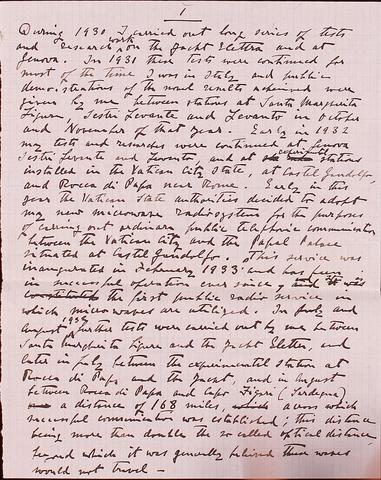 1
During 1930 I carried out long series of tests
and research work on the Yacht Elettra and at
Genova. In 1931 these tests were continued for
most of the time I was in Italy and public
demonstrations of the novel results achieved were
given by me between stations at Santa Margherita
Ligure, Sestri Levante and Levanto in October
and November of that year. Early in 1932
my tests and researches were continued at Genova
Sestri Levante and Levanto, and at experimental stations
installed in the Vatican City State, at Castel Gandolfo,
and Rocca di Papa near Rome. Early in this
year the Vatican State authorities decided to adopt
my new microwave radiosystem for the purposes
of carrying out ordinary public telephonic communication
between the Vatican City and the Papal Palace
situated at Castel Gandolfo. This service was
inaugurated in February 1933 and has been
in successful operation ever since, and it was
the first public radio service in
which microwaves are utilized. In July and
August 1932 further tests were carried out by me between
Santa Margherita Ligure and the Yacht Elettra, and
later in July between the experimental station at
Rocca di Papa and the Yacht, and in August
between Rocca di Papa and Capo Figari (Sardegna)
a distance of 168 miles, which across which
successful communication was established; this distance
being more than double the so called optical distance,
beyond which it was generally believed these waves
would not travel —